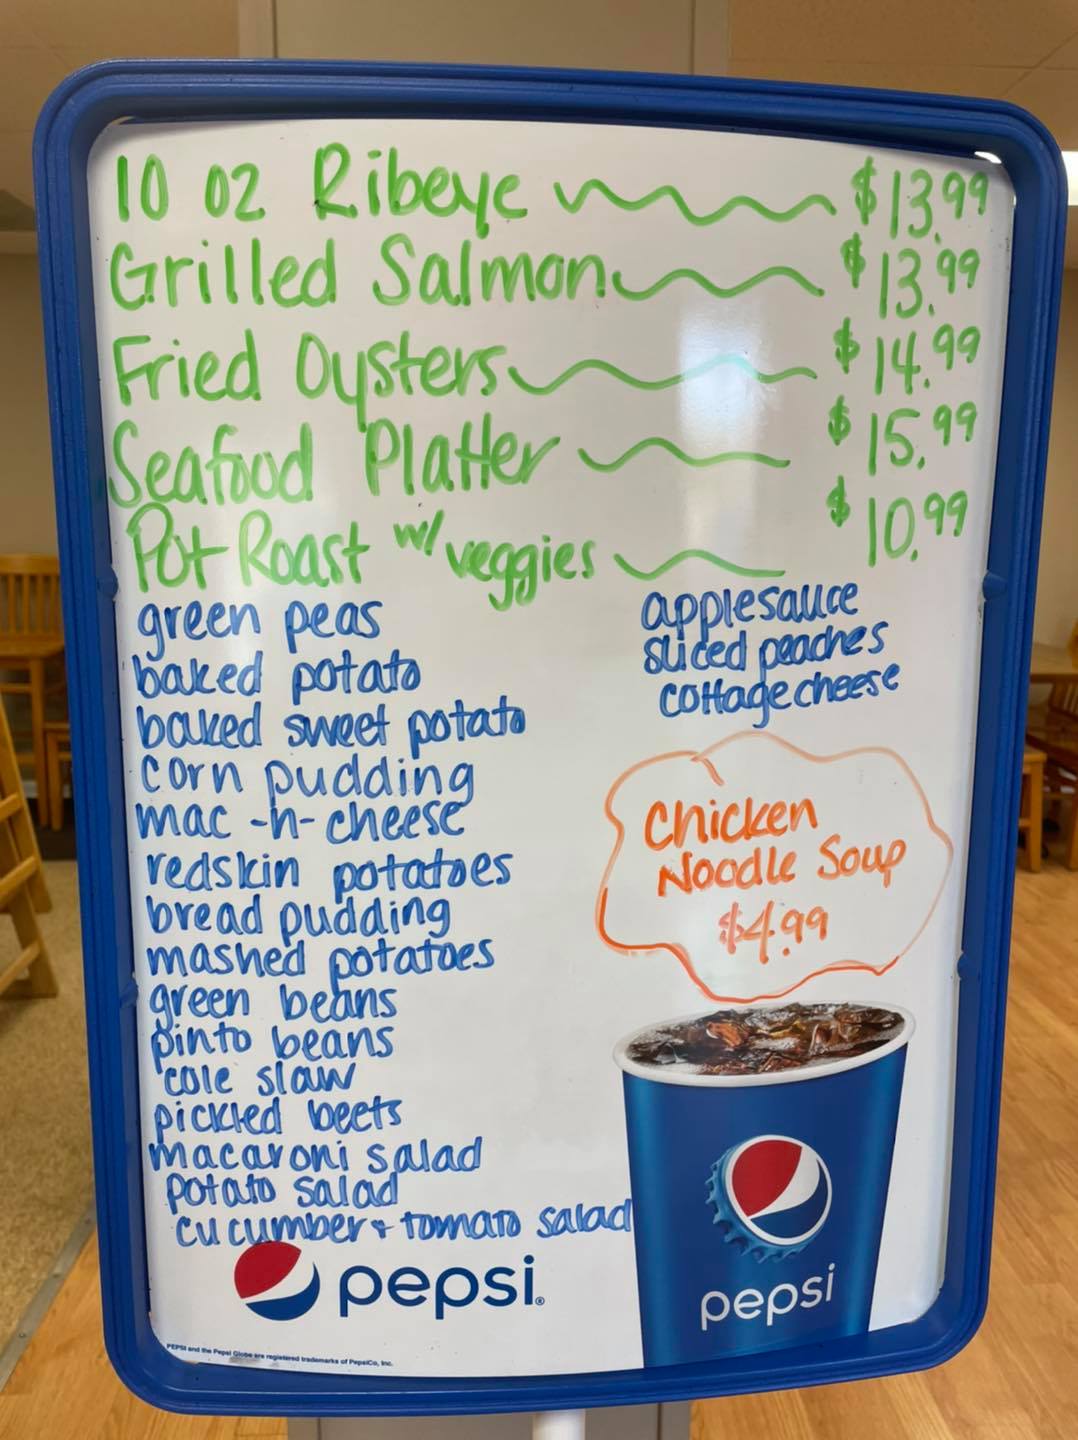 10 oz Ribeye $13.99
Grilled Salmon $13.99
Fried Oysters $14.99
Seafood Platter $15.99
Pot Roast w/ veggies $10.99
green peas
baked potato
baked sweet potato
corn pudding
mac -n- cheese
redskin potatoes
bread pudding
mashed potatoes
green beans
pinto beans
cole slaw
pickled beets
macaroni salad
potato salad
cucumber + tomato salad
applesauce
sliced peaches
cottage cheese
Chicken
Noodle Soup
$4.99
pepsi
pepsi®
PEPSI and the Pepsi Globe are registered trademarks of PepsiCo, Inc.